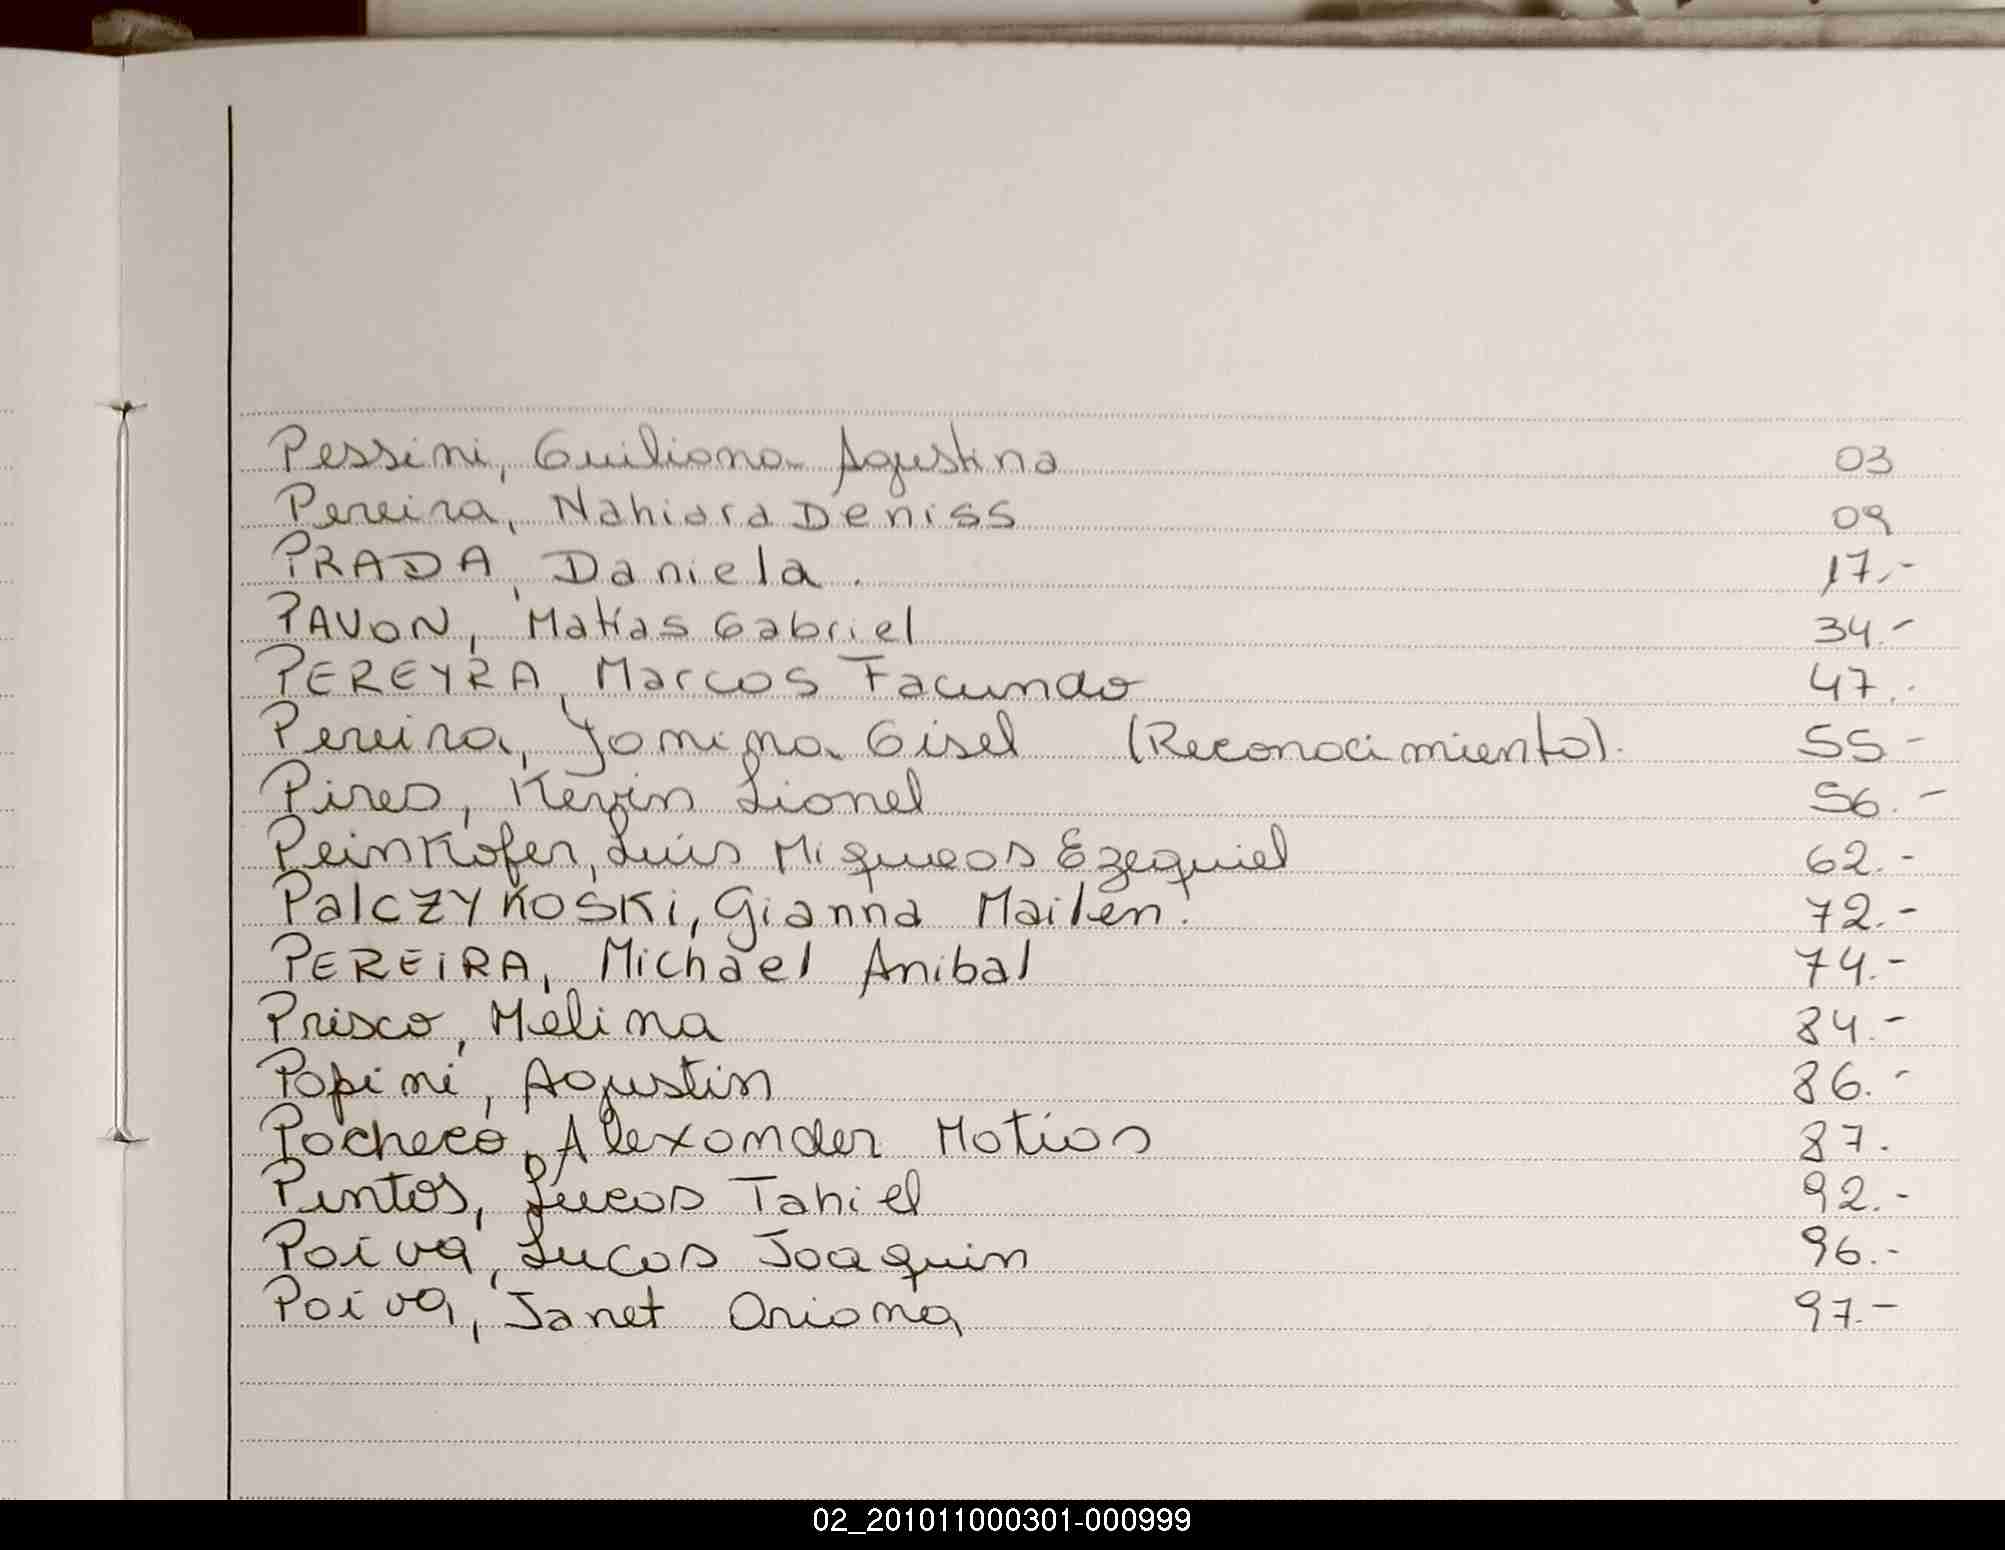 Pessini, Guiliana Agustina 03
Pereira, Nahiara Deniss 09
PRADA, Daniela. 17.-
PAVON, Matías Gabriel 34.-
PEREYRA, Marcos Facundo 47.-
Pereira, Yamina Gisel (Reconocimiento). 55-
Pires, Kevin Lionel 56.-
Peinkofer, Luis Miqueas Ezequiel 62.-
PalCZYKOSKi, Gianna Mailen. 72.-
PEREiRA, Michael Anibal 74.-
Prisco, Melina 84.-
Papini, Agustin 86.-
Pacheco, Alexander Matias 87.
Pintos, Lucas Tahiel 92.-
Paiva, Lucas Joaquin 96.-
Paiva, Janet Oriana 97.-
02_201011000301-000999